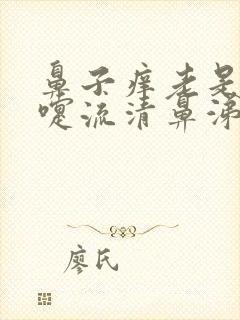 鼻子痒老是
嚏流清鼻涕
廖氏